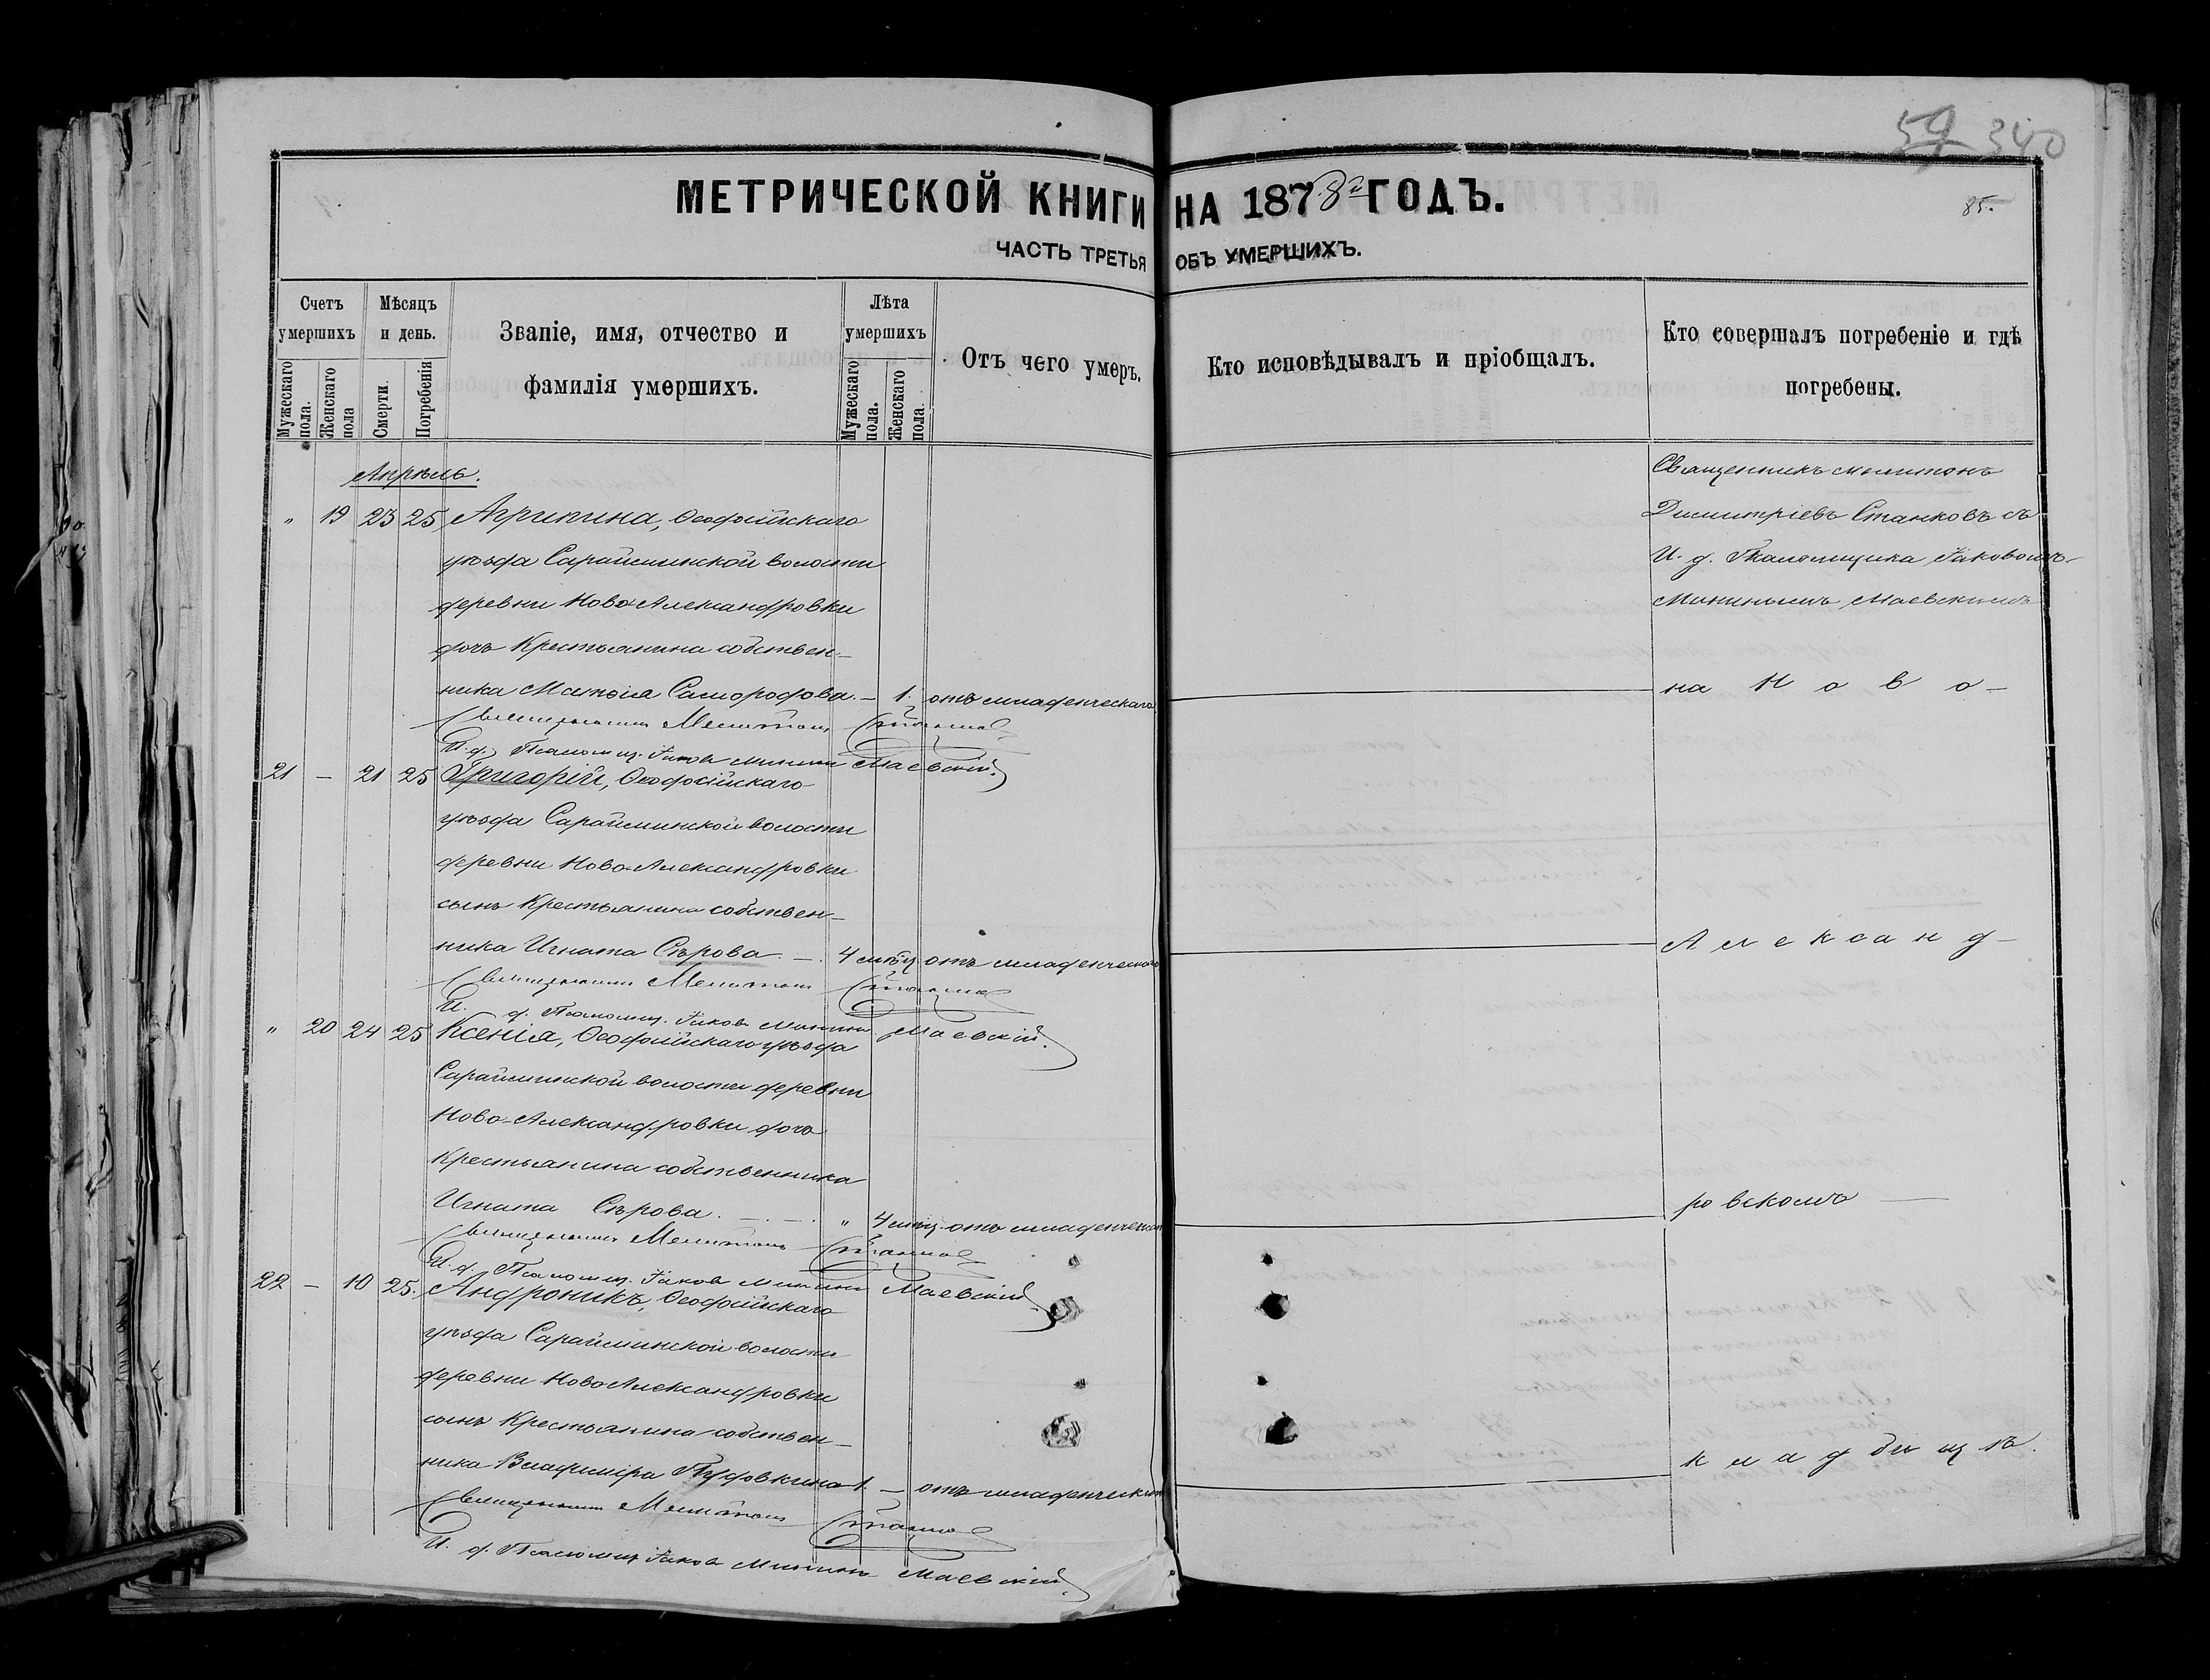 59 340
МЕТРИЧЕСКОЙ КНИГИ НА 1878й ГОДЪ.
85.
ЧАСТЬ ТРЕТЬЯ ОБЪ УМЕРШИХЪ.
Счетъ умершихъ
Мужескаго пола.
Женскаго пола
Мѣсяцъ и день.
Смерти.
Погребенія
Званіе, имя, отчество и фамилія умершихъ.
Лѣта умершихъ
Мужескаго пола.
Женскаго пола.
Отъ чего умеръ.
Кто исповѣдывалъ и пріобщалъ.
Кто совершалъ погребеніе и гдѣ погребены.
Апрѣль.
" 19 23 25 Агрипина, Ѳеодосійскаго
уѣзда Сарайминской волости
деревни Ново Александровки
дочь Крестьянина собствен-
ника Матвѣя Самородова. — 1. отъ младенческаго
Священникъ Мелитонъ Станковъ
И. д. Псаломщ. Іаковъ Мининъ Маевскій.
21 — 21 25 Григорій, Ѳеодосійскаго
уѣзда Сарайминской волости
деревни Ново Александровки
сынъ Крестьянина собствен-
ника Игната Сѣрова. — 4 мѣсц отъ младенческаго
Священникъ Мелитонъ Станковъ
И. д. Псаломщ. Іаковъ Мининъ Маевскій.
" 20 24 25 Ксенія, Ѳеодосійскаго уѣзда
Сарайминской волости деревни
Ново-Александровки дочь
Крестьянина собственника
Игната Сѣрова. — " 4 мѣц. отъ младенческаго
Священникъ Мелитонъ Станковъ
И. д. Псаломщ. Іаковъ Мининъ Маевскій.
22 — 10 25. Андроникъ, Ѳеодосійскаго
уѣзда Сарайминской волости
деревни Ново Александровки
сынъ Крестьянина собствен-
ника Владиміра Пудовкина 1. — отъ младенческаго
Священникъ Мелитонъ Станковъ
И. д. Псаломщ. Іаковъ Мининъ Маевскій.
Священникъ Мелитонъ
Димитріевъ Станковъ съ
И. д. Псаломщика Іаковомъ
Мининымъ Маевскимъ
на Ново-
Александ-
ровскомъ
кладбищѣ.